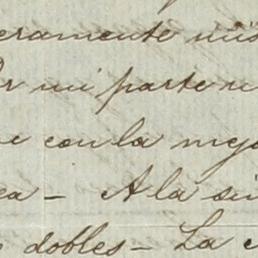 eramente
r mi parte n
e con la mej
ca - A la si
dobles - La